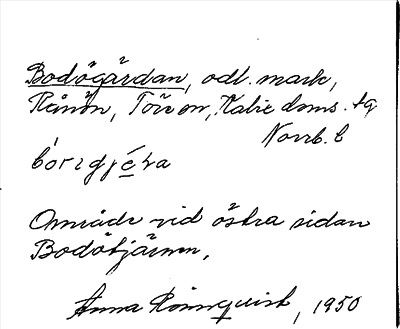 Bodögärdan, odl. mark,
Rånön, Töre sn, Kalix doms. tg
Norrb. l
Område vid östra sidan
Bodötjärnen,
Anna Rönnquist, 1950